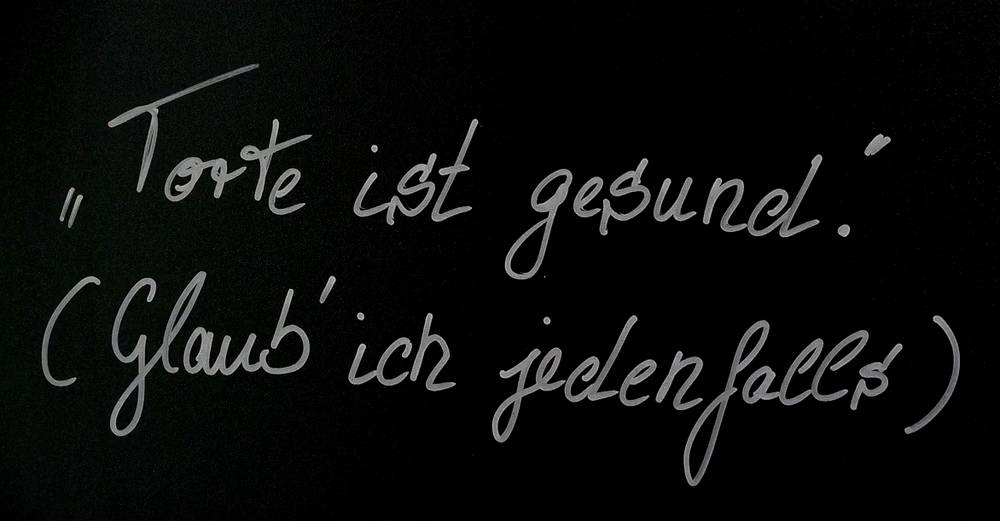 „Torte ist gesund."
(Glaub' ich jedenfalls)